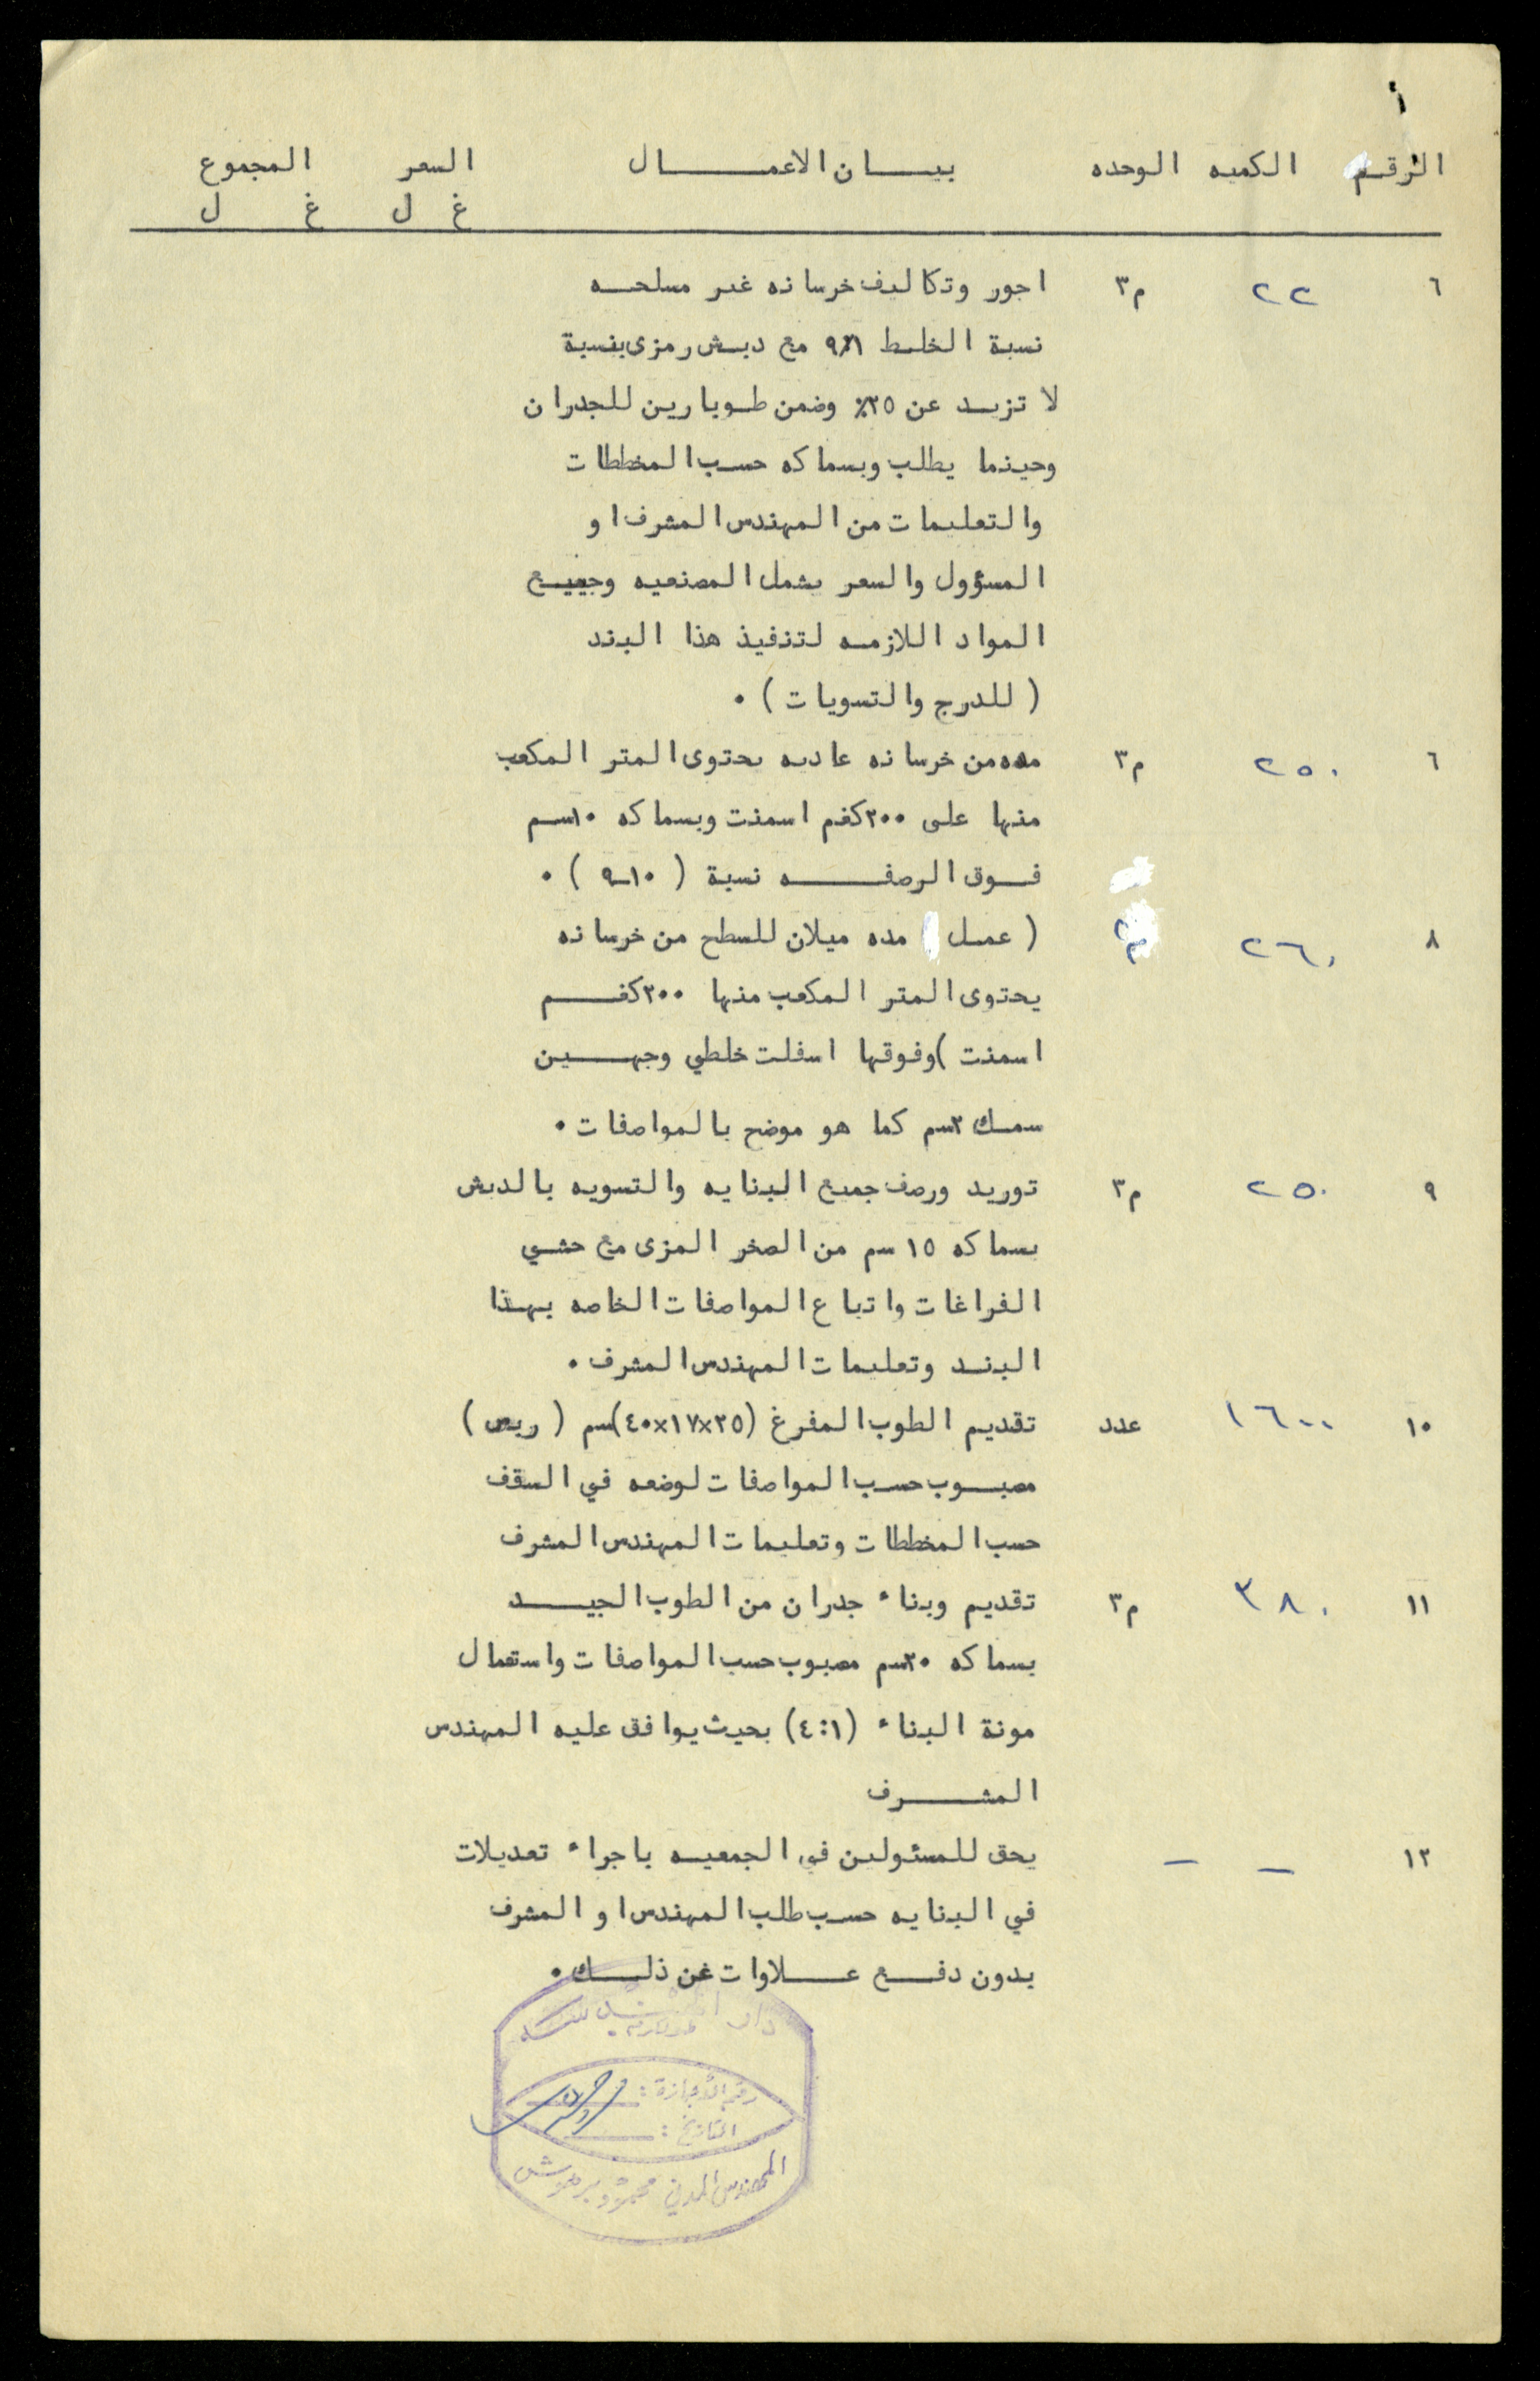 الرقم الكميه الوحده بيـــان الاعمـــــال السعر المجموع
غ ل غ ل
٦ ٢٢ م٣ اجور وتكاليف خرسانه غير مسلحــه
نسبة الخلـط ٩٪١ مع دبـش رمزى بنسبة
لا تزيـد عن ٢٥٪ وضمن طـوبارين للجدران
وحيثما يطلب وبسماكه حسـب المخططات
والتعليمات من المهندس المشرف او
المسؤول والسعر يشمل المصنعيه وجميـع
المواد اللازمـه لتنفيذ هذا البند
( للدرج والتسويات ) ٠
٦ ٢٥٠ م٣ مده من خرسانه عاديه يحتوى المتر المكعب
منها على ٢٠٠كغم اسمنت وبسماكه ١٠سـم
فـوق الرصفــــه نسبة ( ١٠ـ٩ ) ٠
٨ ٢٦٠ م٢ ( عمـل مده ميلان للسطح من خرسانه
يحتوى المتر المكعب منها ٢٠٠كغــم
اسمنت )وفوقها اسفلت خلطي وجهــين
سمـك ٢سم كما هو موضح بالمواصفات ٠
٩ ٢٥٠ م٣ توريد ورصف جميع البنايه والتسويه بالدبش
بسماكه ١٥ سم من الصخر المزى مع حشـي
الفراغات واتباع المواصفات الخاصه بهـذا
البنـد وتعليمات المهندس المشرف ٠
١٠ ١٦٠٠ عدد تقديم الطوب المفرغ (٤٠×١٧×٢٥)سم ( ربص )
مصبـوب حسـب المواصفات لوضعه في السقف
حسب المخططات وتعليمات المهندس المشرف
١١ ٣٨٠ م٣ تقديم وبناء جدران من الطوب الجيــد
بسماكه ٢٠سم مصبوب حسب المواصفات واستعمال
مونة البناء (٤:١) بحيث يوافق عليه المهندس
المشـــرف
١٢ – – يحق للمسئولين في الجمعيـه باجراء تعديلات
في البنايه حسـب طلب المهندس او المشرف
بدون دفــع عــلاوات عن ذلــك ٠
دار
رقم الاجازة :
التاريخ :
المهندس المدني محمود برهوش